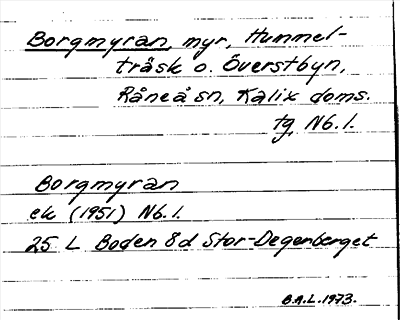 Borgmyran, myr, Hummel-
träsk o. Överstbyn,
Råneå sn, Kalix doms.
tg, Nb. l.
Borgmyran
ek (1951) Nb. l.
25 L Boden 8d Stor-Degerberget
B.A.L. 1973.